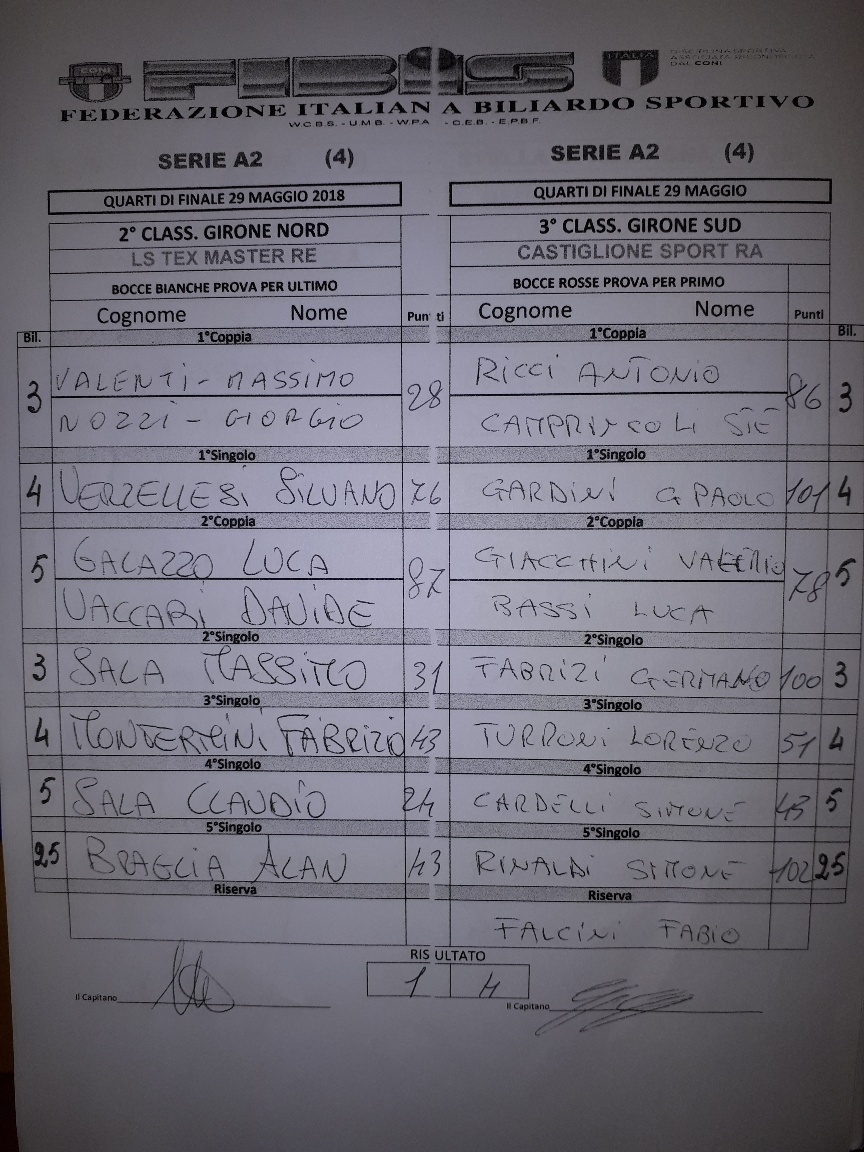 CONI FIBiS ITALIA DISCIPLINA SPORTIVA
ASSOCIATA RICONOSCIUTA
DAL CONI
FEDERAZIONE ITALIAN A BILIARDO SPORTIVO
W.C.B.S. - U.M.B. - W.P.A. - C.E.B. - E.P.B.F.
SERIE A2 (4) SERIE A2 (4)
QUARTI DI FINALE 29 MAGGIO 2018 QUARTI DI FINALE 29 MAGGIO
2° CLASS. GIRONE NORD 3° CLASS. GIRONE SUD
LS TEX MASTER RE CASTIGLIONE SPORT RA
BOCCE BIANCHE PROVA PER ULTIMO BOCCE ROSSE PROVA PER PRIMO
Cognome Nome Pun ti Cognome Nome Punti
Bil. 1°Coppia 1°Coppia Bil.
3 VALENTI - MASSIMO 28 RICCI ANTONIO 86 3
NOZZI - GIORGIO
1°Singolo 1°Singolo
4 VERZELLESI SILVANO 76 GARDINI G PAOLO 101 4
2°Coppia 2°Coppia
5 GALAZZO LUCA 87 GIACCHINI VALERIO 78 5
VACCARI DAVIDE BASSI LUCA
2°Singolo 2°Singolo
3 SALA MASSIMO 31 FABRIZI GERMANO 100 3
3°Singolo 3°Singolo
4 MONTERMINI FABRIZIO 43 TURRONI LORENZO 51 4
4°Singolo 4°Singolo
5 SALA CLAUDIO 24 CARDELLI SIMONE 43 5
5°Singolo 5°Singolo
25 BRAGLIA ALAN 43 RINALDI SIMONE 102 25
Riserva Riserva
FALCINI FABIO
RIS ULTATO
1 4
Il Capitano Il Capitano